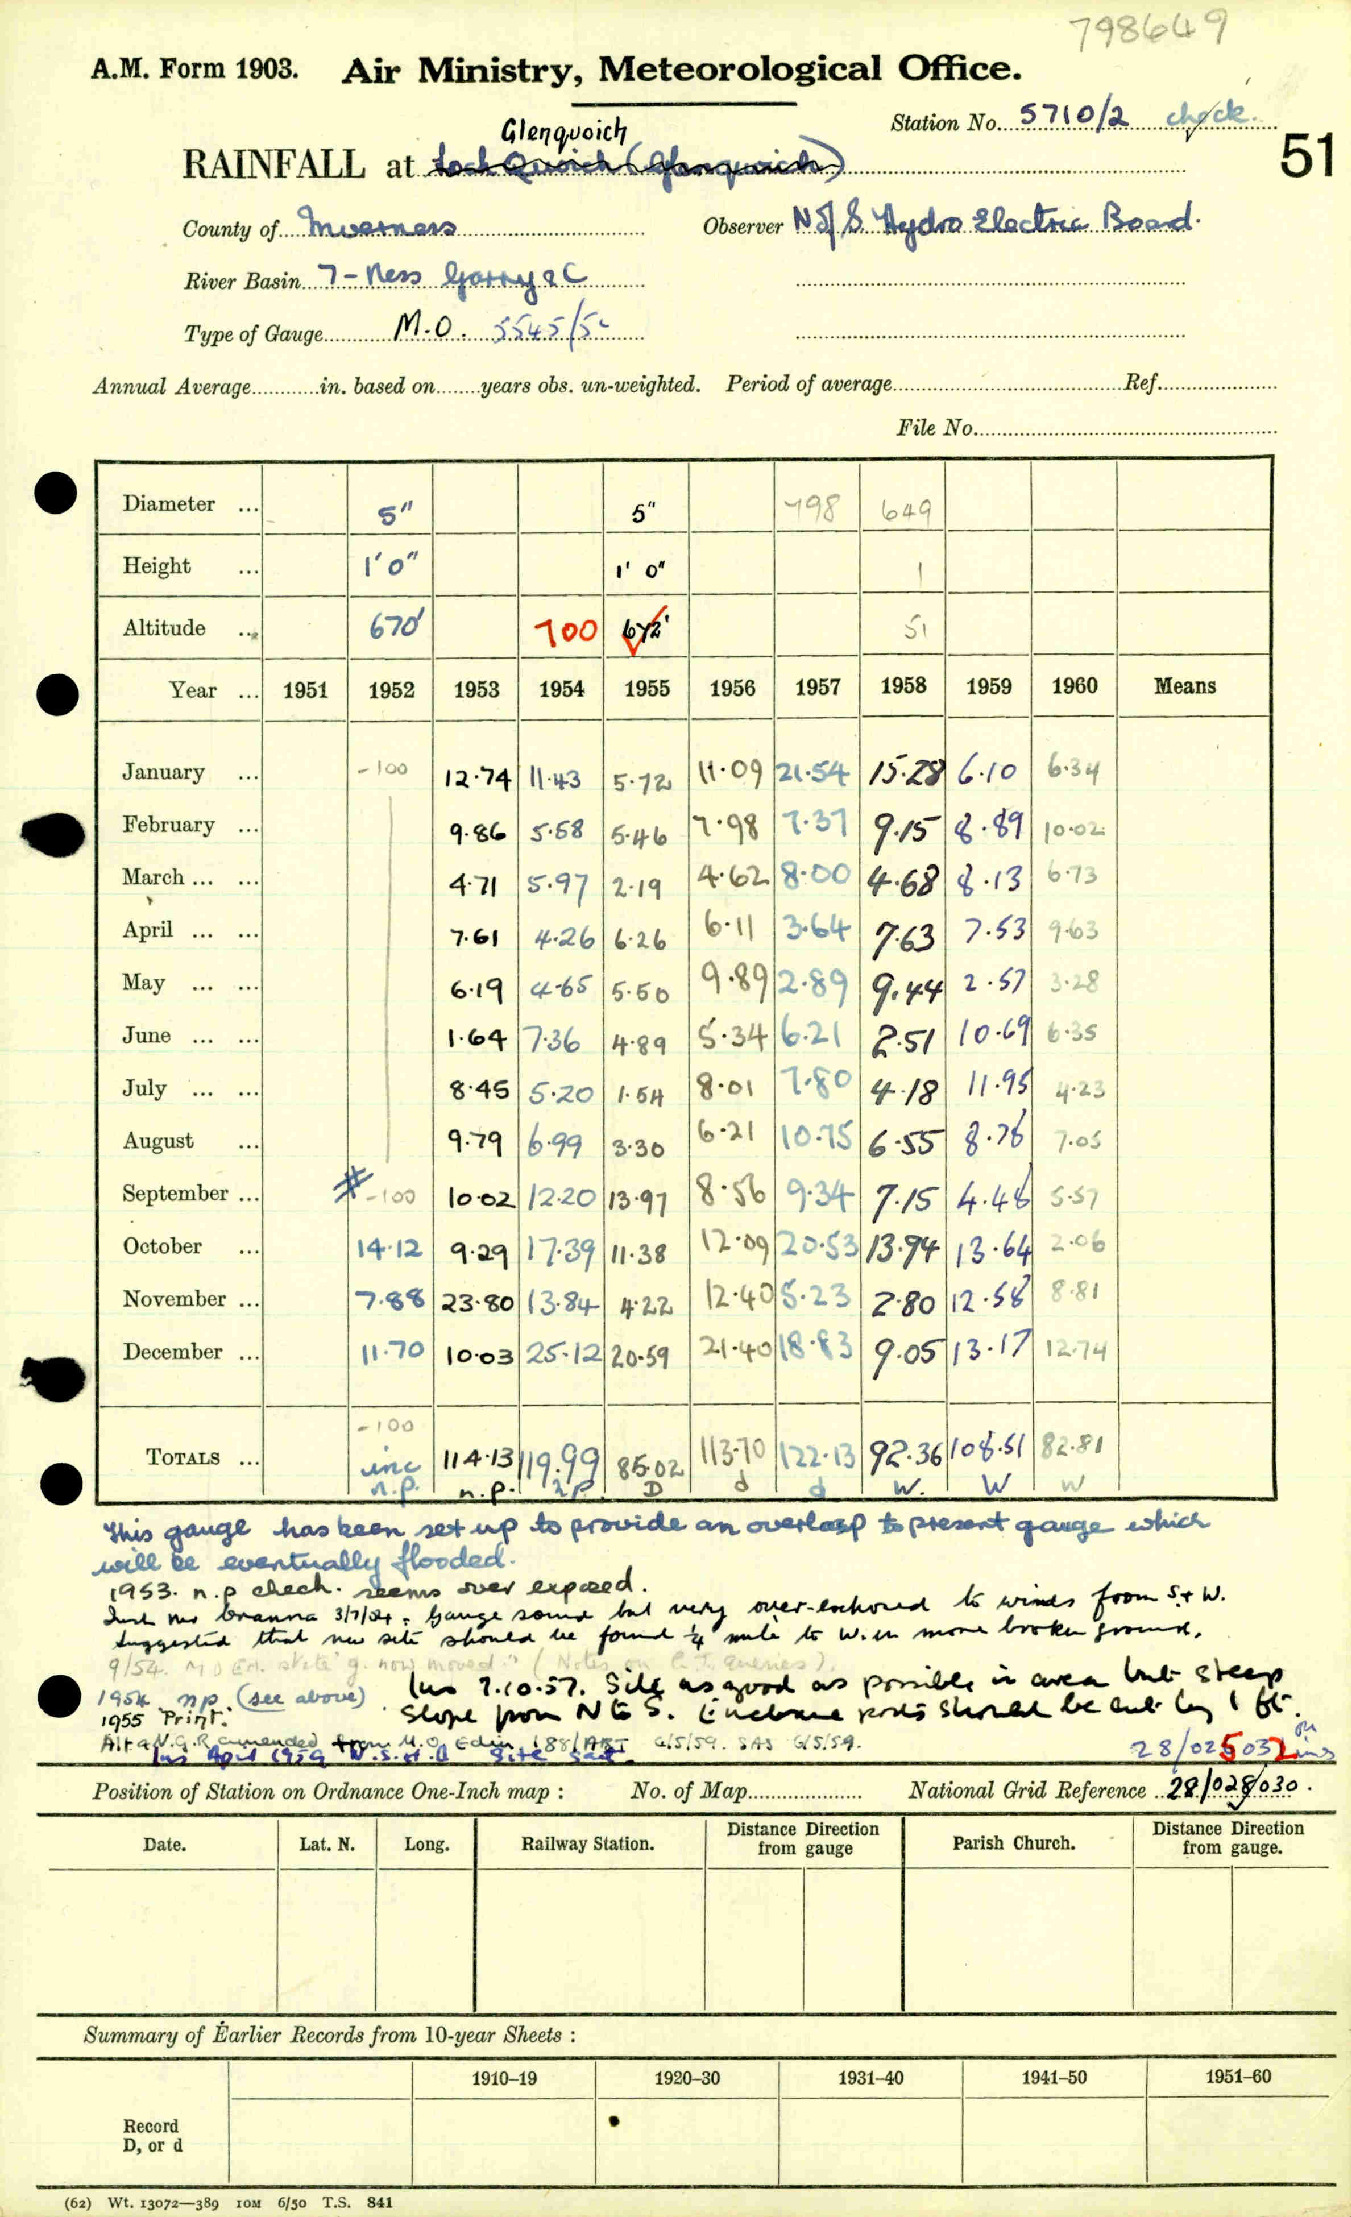 798649
A.M. Form 1903. Air Ministry, Meteorological Office.
Station No. 5710/2 check.
51
Glenquoich
RAINFALL at Loch Quoich (Glenquoich)
County of Inverness Observer N of S Hydro Electric Board.
River Basin 7 - Ness Garry & C
Type of Gauge M.O. 5545/5
Annual Average in. based on years obs. un-weighted. Period of average Ref.
File No.
Diameter ... 5" 5" 798 649
Height ... 1' 0" 1' 0" 1
Altitude ... 670' 700 672' 51
Year ... 1951 1952 1953 1954 1955 1956 1957 1958 1959 1960 Means
January ... -100 12.74 11.43 5.72 11.09 21.54 15.28 6.10 6.34
February ... 9.86 5.58 5.46 7.98 7.37 9.15 8.89 10.02
March ... ... 4.71 5.97 2.19 4.62 8.00 4.68 8.13 6.73
April ... ... 7.61 4.26 6.26 6.11 3.64 7.63 7.53 9.63
May ... ... 6.19 4.65 5.50 9.89 2.89 9.44 2.57 3.28
June ... ... 1.64 7.36 4.89 5.34 6.21 2.51 10.69 6.35
July ... ... 8.45 5.20 1.54 8.01 7.80 4.18 11.95 4.23
August ... 9.79 6.99 3.30 6.21 10.75 6.55 8.76 7.05
September ... # -100 10.02 12.20 13.97 8.56 9.34 7.15 4.48 5.57
October ... 14.12 9.29 17.39 11.38 12.09 20.53 13.94 13.64 2.06
November ... 7.88 23.80 13.84 4.22 12.40 5.23 2.80 12.58 8.81
December ... 11.70 10.03 25.12 20.59 21.40 18.83 9.05 13.17 12.74
-100
TOTALS ... inc 114.13 119.99 85.02 113.70 122.13 92.36 108.51 82.81
n.p. n.p. n.p. D d d W. W W
This gauge has been set up to provide an overlap to present gauge which
will be eventually flooded.
1953. n.p check. seems over exposed.
3/7/54. Gauge sound but very over-exposed to winds from S + W.
Suggested that new site should be found 1/4 mile to W. in more broken ground.
9/54. M O Ed. state "g. now moved" (Notes on queries).
1954 np (see above) Ins 7.10.57. Site as good as possible in area but steep
1955 Print. Slope from N to S. Enclosure posts should be cut by 1 ft.
Alt & N.G.R amended from M.O. Edin. 6/5/59. SAS 6/5/59.
Ins April 1959 N.S.H.B Site sat. 28/025032 on ins
Position of Station on Ordnance One-Inch map : No. of Map National Grid Reference 28/028030.
Date. Lat. N. Long. Railway Station. Distance Direction from gauge Parish Church. Distance Direction from gauge.
Summary of Earlier Records from 10-year Sheets :
1910–19 1920–30 1931–40 1941–50 1951–60
Record
D, or d
(62) Wt. 13072—389 10M 6/50 T.S. 841